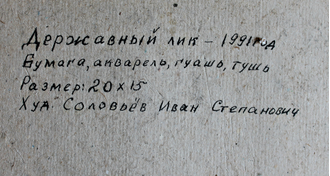 Державный лик – 1991 год
Бумага, акварель, гуашь, тушь
Размер: 20 х 15
Худ. Соловьёв Иван Степанович